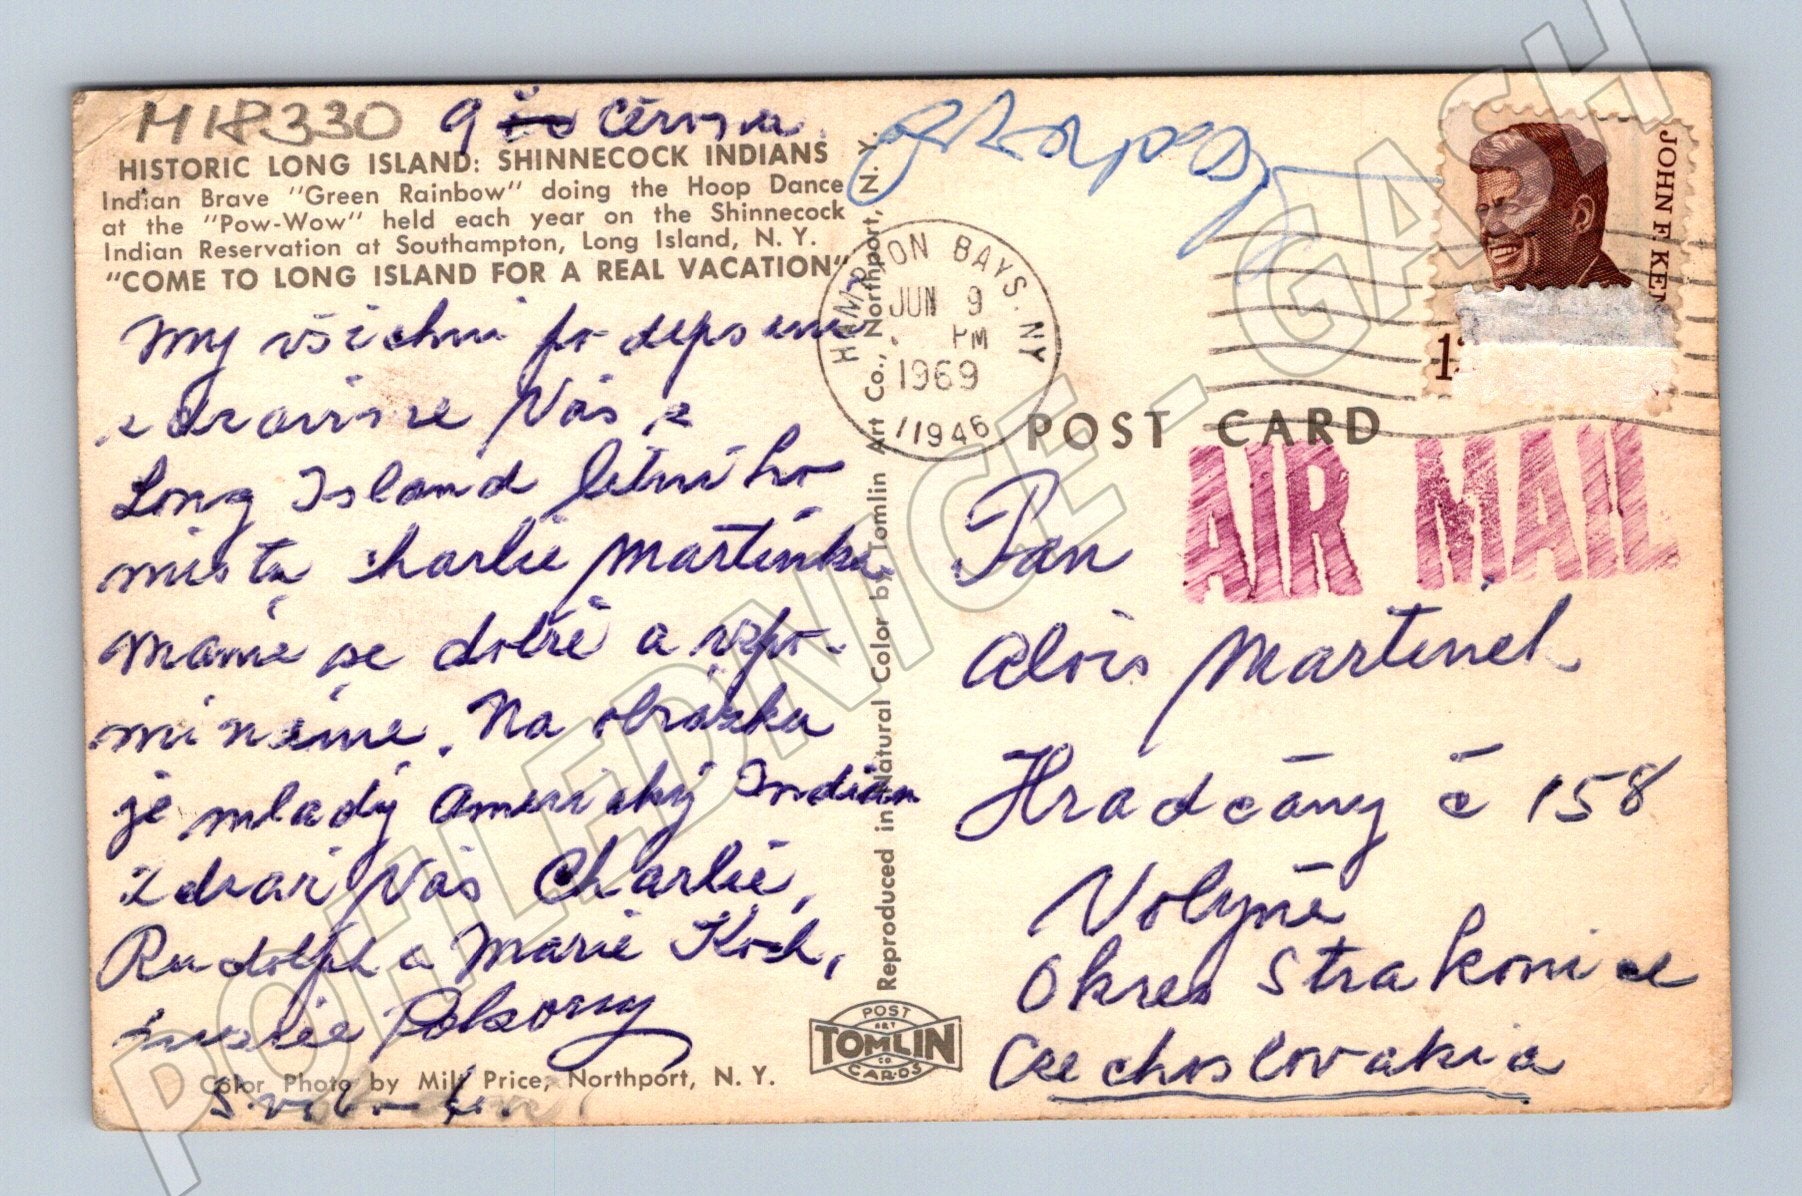 HIR330
9 Června
HISTORIC LONG ISLAND: SHINNECOCK INDIANS
Indian Brave "Green Rainbow" doing the Hoop Dance
at the "Pow-Wow" held each year on the Shinnecock
Indian Reservation at Southampton, Long Island, N. Y.
"COME TO LONG ISLAND FOR A REAL VACATION"
My všichni po
zdravíme Vás z
Long Island letního
místa Charlie Martinka
máme se dobře a vzpo-
mínáme. Na obrázku
je mladý Americký Indián
zdraví Vás Charlie,
Rudolph a Marie Koch,
Pokorny
Color Photo by Milt Price, Northport, N. Y.
Reproduced in Natural Color by Tomlin Art Co., Northport, N. Y.
POST
ART
TOMLIN
CO
CARDS
HAMPTON BAYS. NY
JUN 9
PM
1969
11946
JOHN F. KEN
1
POST CARD
AIR MAIL
Pan
Alois Martinek
Hradčany č 158
Volyně
Okres Strakonice
Czechoslovakia
POHLEDNICE - GASH